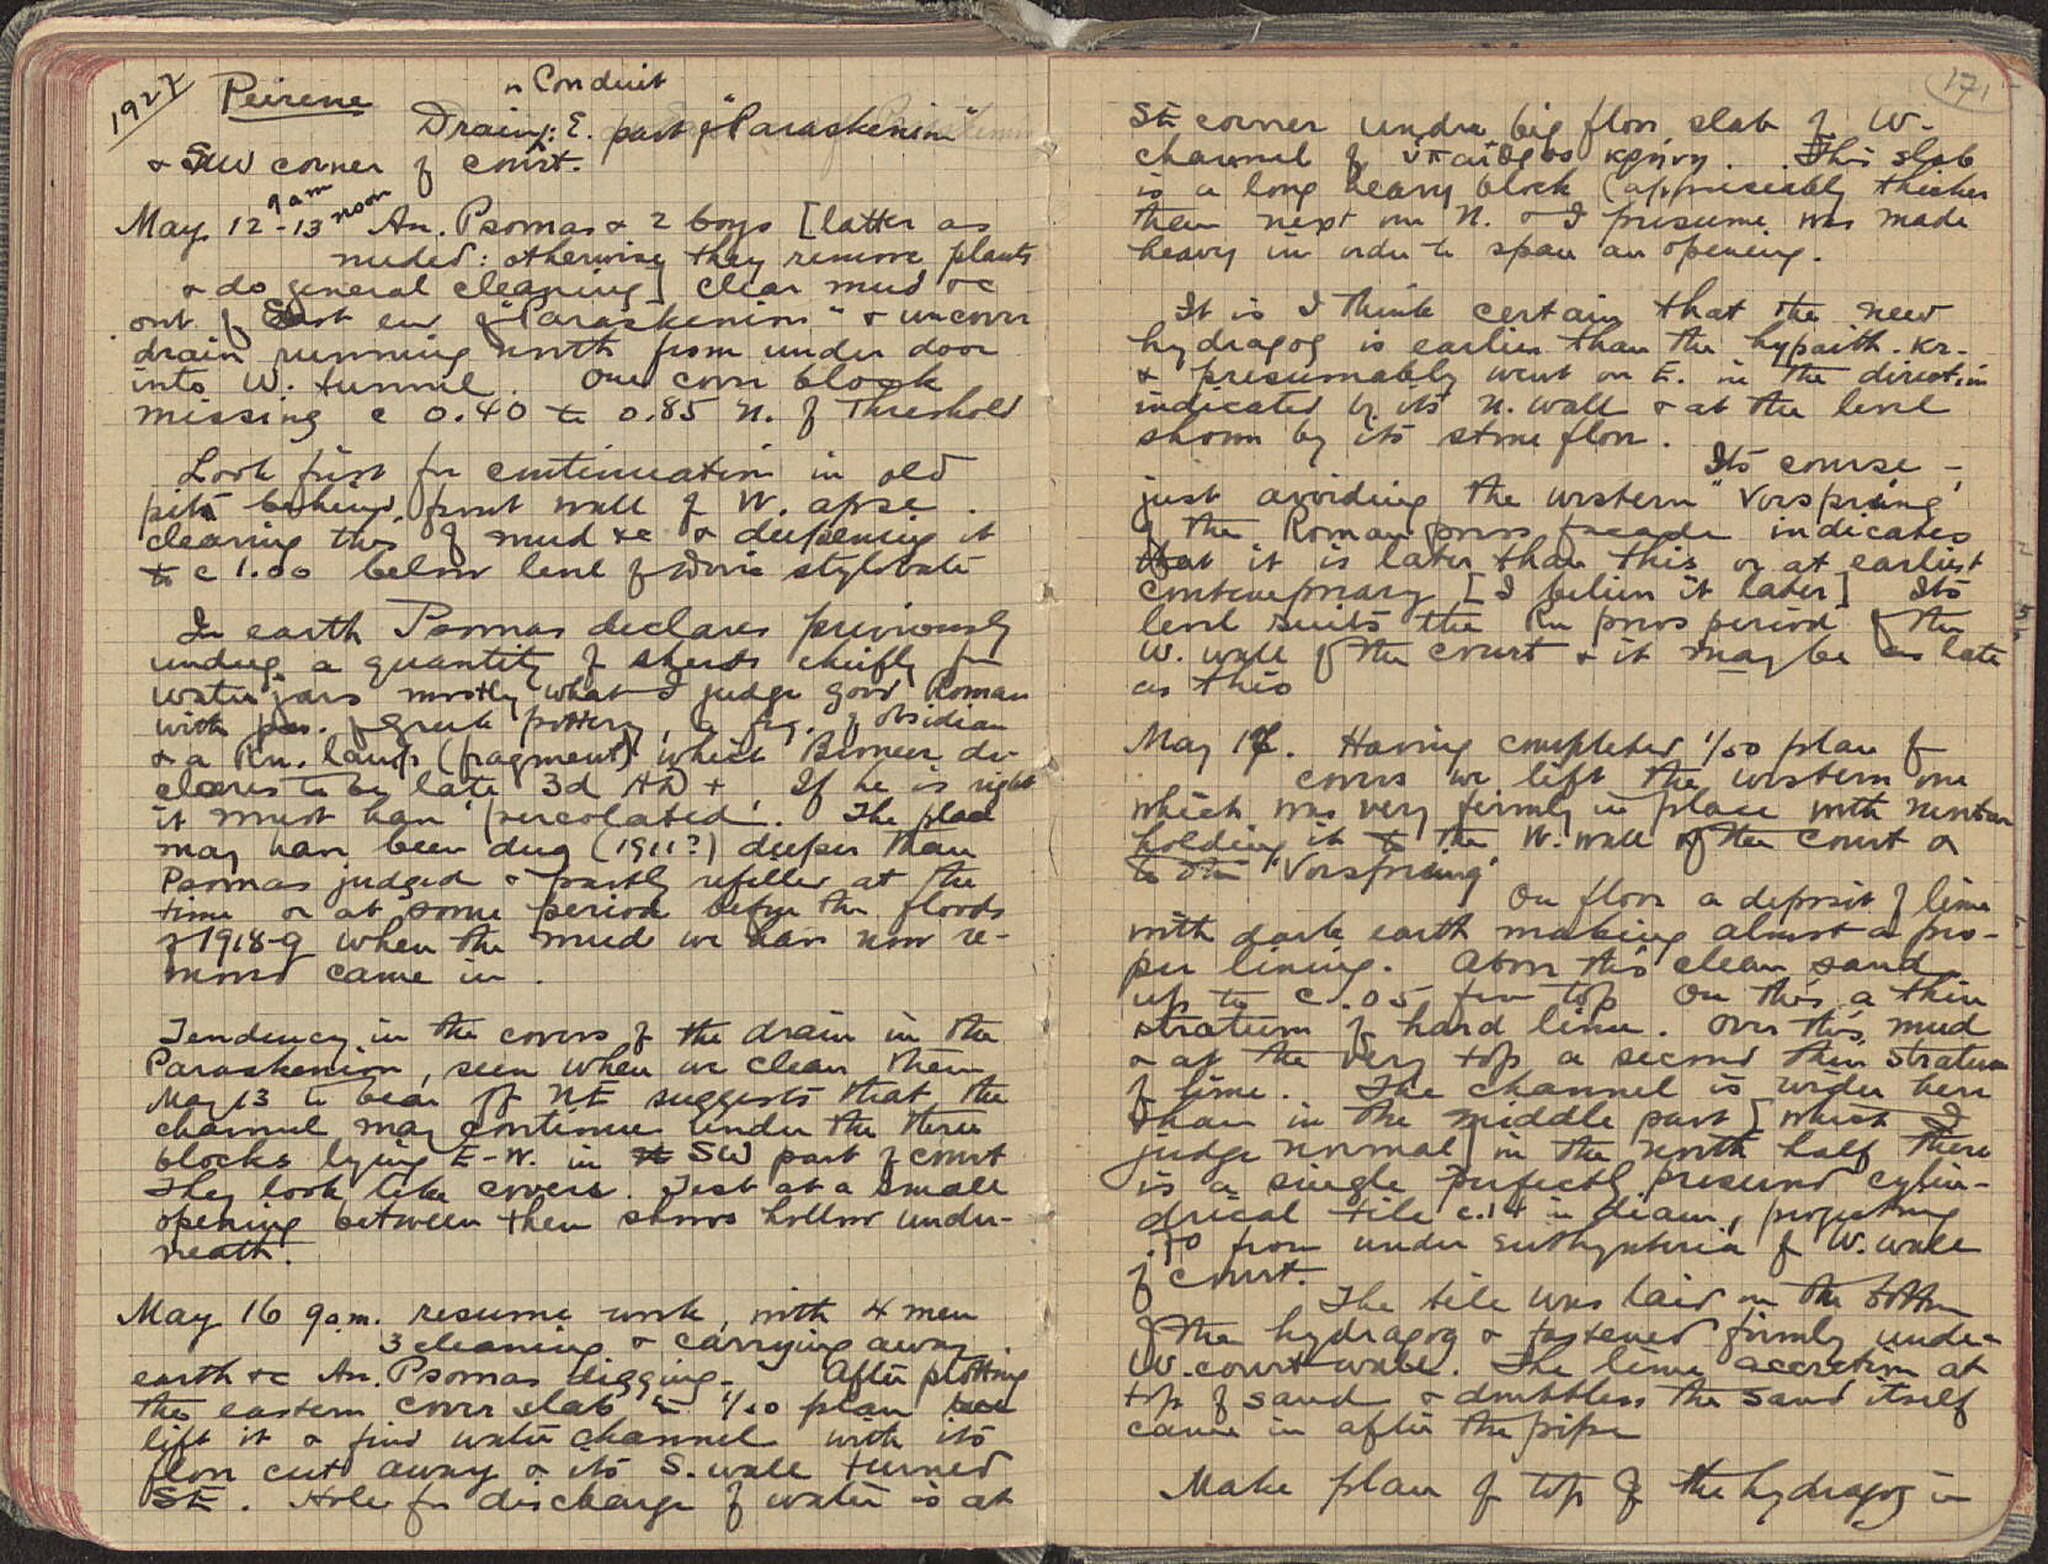 1927 Peirene
" Conduit
Drain: E. part of "Paraskenion"
& SW corner of court.
9 am noon
May 12-13 An. Psomas & 2 boys [latter as
needed: otherwise they remove plants
& do general cleaning] clear mud &c
out of East end of "Paraskenion" & uncover
drain running north from under door
into W. tunnel. One cover block
missing c 0.40 to 0.85 N. of Threshold
Look first for continuation in old
pit behind front wall of W. apse.
clearing this of mud &c & deepening it
to c 1.00 below level of Doric stylobate
In earth Psomas declares previously
undug a quantity of sherds chiefly fr
water jars mostly what I judge good Roman
with pcs. of Greek pottery, a frg. of obsidian
& a Rn. lamp (fragment) which Broneer de-
clares to be late 3d AD +. If he is right
it must have 'percolated'. The place
may have been dug (1911?) deeper than
Psomas judged & partly refilled at the
time or at some period before the floods
of 1918-9 when the mud we have now re-
moved came in.
Tendency in the covers of the drain in the
Paraskenion, seen when we clean them
May 13 to bear off NE suggests that the
channel may continue under the three
blocks lying E-W. in SW part of court
They look like covers. Test at a small
opening between them shows hollow under-
neath.
May 16 9 a.m. resume work, with 4 men
3 cleaning & carrying away
earth &c An. Psomas digging. After plotting
the eastern cover slab in 1/50 plan
lift it & find water channel with its
floor cut away & its S. wall turned
SE. Hole for discharge of water is at
171
SE corner under big floor slab of W.
channel of ὑπαίθρος κρήνη. This slab
is a long heavy block (appreciably thicker
than next one N. & I presume was made
heavy in order to span an opening.
It is I think certain that the new
hydragog is earlier than the hypaith. Kr.
& presumably went on E. in the direction
indicated by its N. wall & at the level
shown by its stone floor.
Its course -
just avoiding the western "Vorsprung"
of the Roman poros facade indicates
that it is later than this or at earliest
contemporary [I believe it later] Its
level suits the Rn poros period of the
W. wall of the court & it may be as late
as this
May 17. Having completed 1/50 plan of
covers we lift the western one
which was very firmly in place with mortar
holding it to the W. wall of the court &
to the 'Vorsprung'
On floor a deposit of lime
with dark earth making almost a pro-
per lining. Above this clean sand
up to c .05 fr top On this a thin
stratum of hard lime. Over this mud
& at the very top a second thin stratum
of lime. The channel is wider here
than in the middle part [which I
judge normal] in the north half there
is a single perfectly preserved cylin-
drical tile c.14 in diam., projecting
from under euthynteria of W. wall
of court.
The tile was laid on the bottom
of the hydragog & fastened firmly under
W. court wall. The lime accretion at
top of sand & doubtless the sand itself
came in after the pipe
Make plan of top of the hydragog in